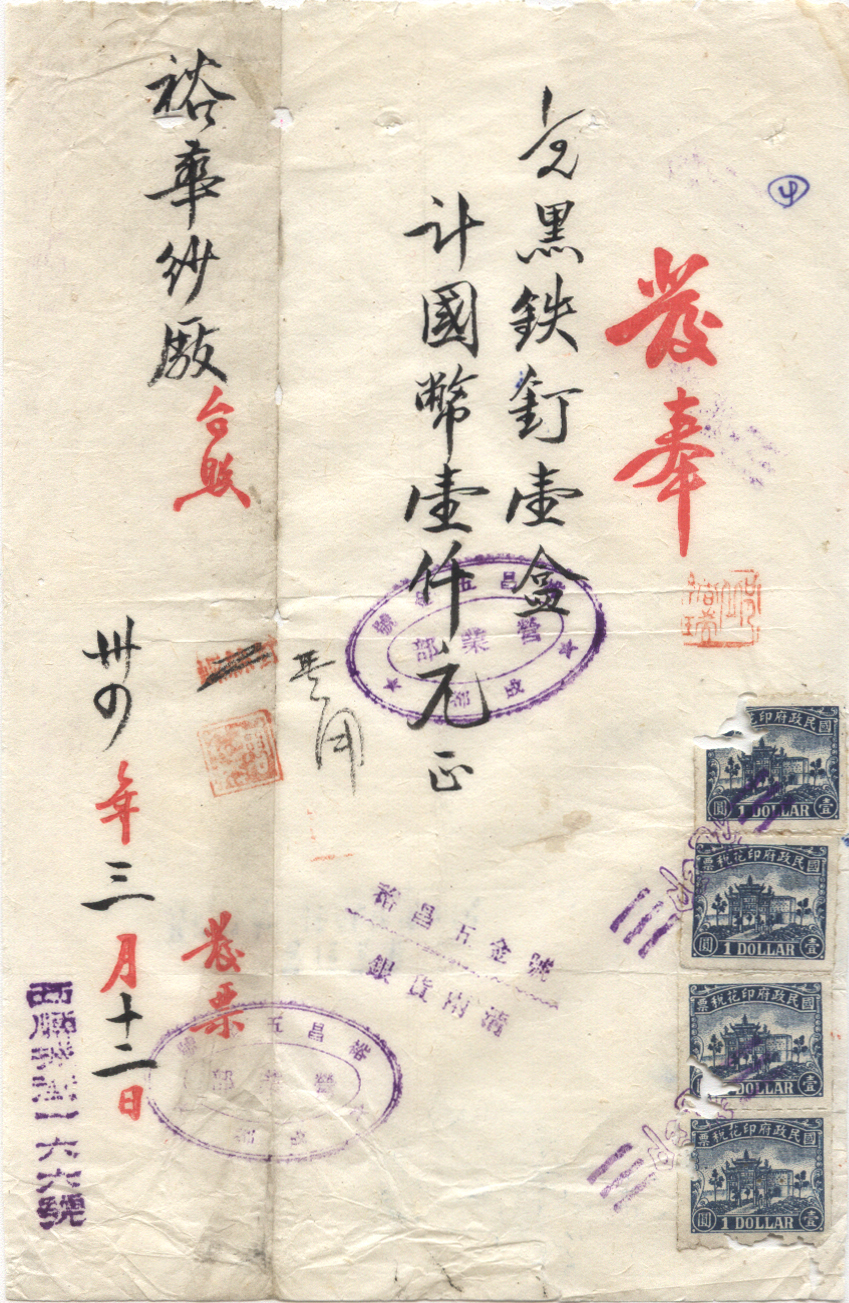 發奉
黑鉄釘壹盒
計國幣壹仟元正
裕昌五金號
營業部
成都
裕華紗廠台照
卅四年三月十二日
發票
裕昌五金號
銀貨兩清
裕昌五金號
營業部
成都
一六六號
國民政府印花
壹 1 DOLLAR 圓
國民政府印花稅票
壹 1 DOLLAR 圓
國民政府印花稅票
壹 DOLLAR 圓
國民政府印花稅票
壹 1 DOLLAR 圓